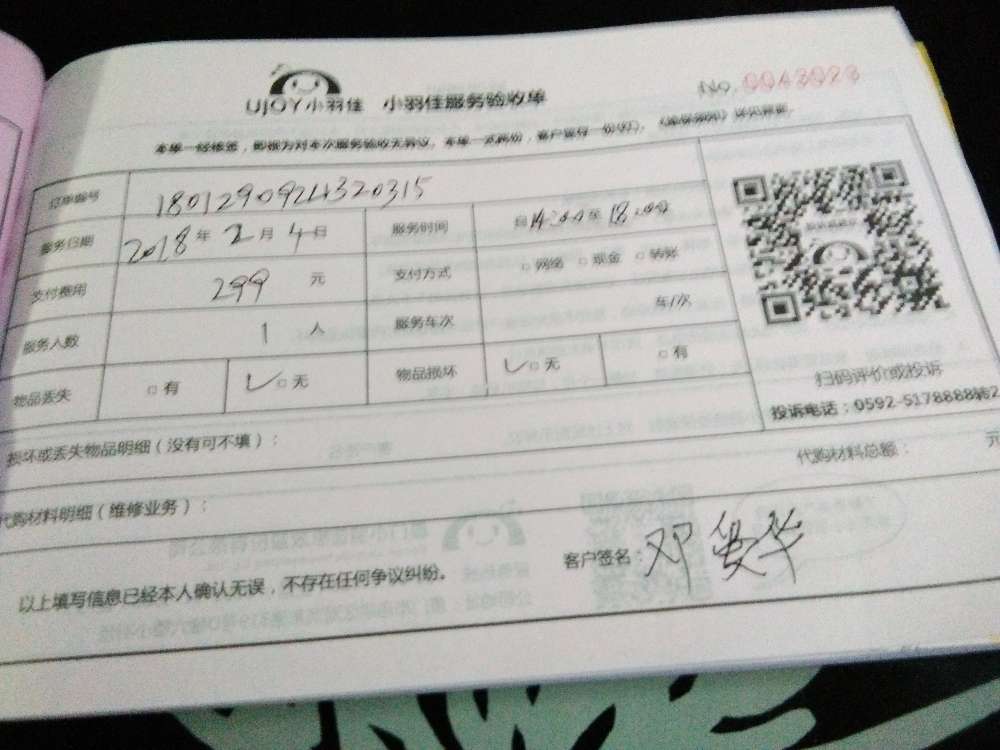 UJOY小羽佳 小羽佳服务验收单 No.0043023
本单一经签签，即视为对本次服务验收无异议。本单一式两份，客户留存一份
订单编号 18012909244320315
服务日期 2018年2月4日 服务时间 自14:00至18:00
支付费用 299元 支付方式 □网络 □现金 □转账
服务人数 1人 服务车次 车/次
物品丢失 □有 ✓□无 物品损坏 ✓□无 □有
扫码评价或投诉
投诉电话：0592-5178888转2
损坏或丢失物品明细（没有可不填）：
代购材料总额： 元
代购材料明细（维修业务）：
客户签名：邓爱华
以上填写信息已经本人确认无误，不存在任何争议纠纷。